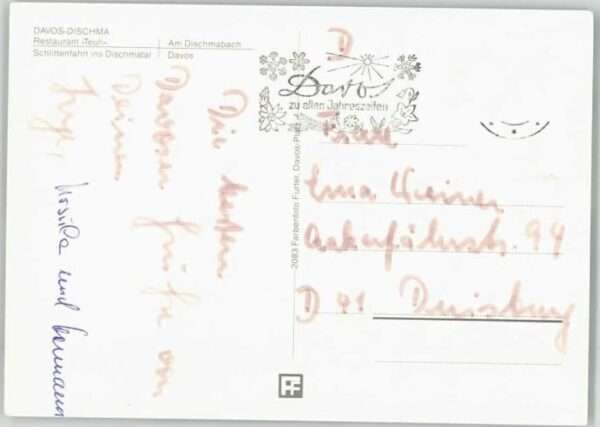 DAVOS-DISCHMA
Restaurant «Teufi» Am Dischmabach
Schlittenfahrt ins Dischmatal Davos
Die besten
Davoser Grüße von
Deiner
Inge,
Ursula und Hermann
D
Davos
zu allen Jahreszeiten
2083 Farbenfoto Furter, Davos-Platz
Frau
Erna
99
D 41 Duisburg